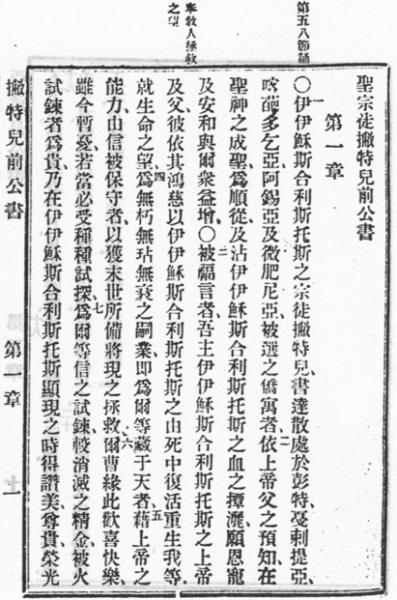 第五八節誦
奉教人拯救
之望
聖宗徒撇特兒前公書
第一章
〇伊伊穌斯合利斯托斯之宗徒撇特兒、書達散處於彭特、憂剌提亞、
喀葩多乞亞、阿錫亞及微肥尼亞、被選之僑寓者、依上帝父之預知、在
聖神之成聖、爲順從及沾伊伊穌斯合利斯托斯之血之撢灑、願恩寵
及安和與爾衆益增、〇被福言者、吾主伊伊穌斯合利斯托斯之上帝
及父、彼依其鴻慈以伊伊穌斯合利斯托斯之由死中復活重生我等、
就生命之望、爲無朽無玷無衰之嗣業、即爲爾等藏于天者、藉上帝之
能力、由信被保守者、以獲末世所備將現之拯救、爾曹緣此歡喜快樂、
雖今暫憂、若當必受種種試探、爲爾等信之試鍊、較消滅之精金被火
試鍊者爲貴、乃在伊伊穌斯合利斯托斯顯現之時得讚美、尊貴、榮光
撇特兒前公書
第一章